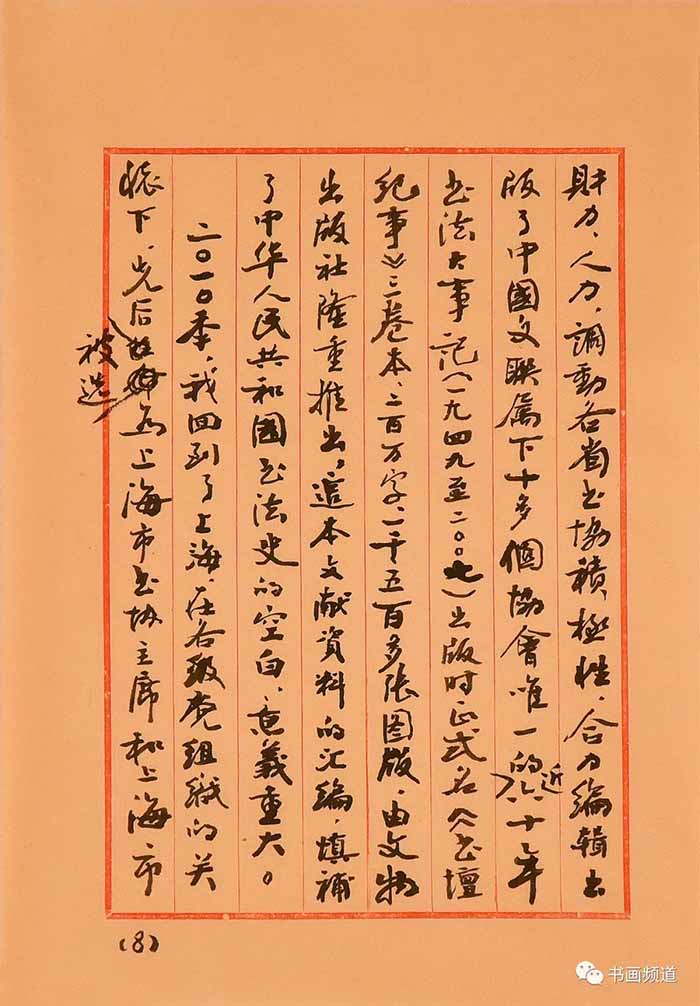 财力、人力,調動各省书协積極性,合力編輯出
版了中國文联属下十多個協會唯一的近六十年
书法大事记(一九四九至二〇〇七)出版时,正式名《书壇
纪事》三卷本、二百万字、一千五百多张图版,由文物
出版社隆重推出,這本文献資料的汇编,填補
了中华人民共和國书法史的空白、意義重大。
二〇一〇年,我回到了上海,在各级党组織的关
懷下,先后被选为上海市书协主席和上海市
(8)
书画频道